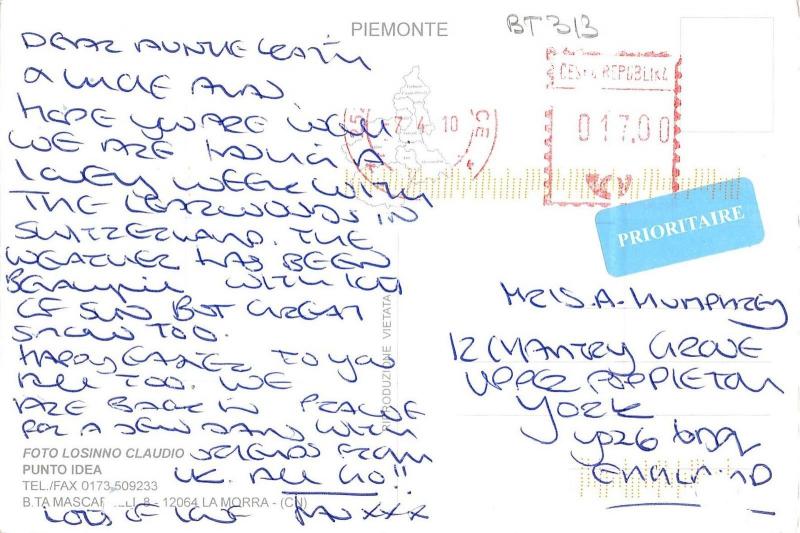 PIEMONTE
BT 313
DEAR AUNTIE
& UNCLE ALAN
HOPE YOU ARE WELL.
WE ARE HAVING A
LOVELY WEEK WITH
THE LEARWOODS IN
SWITZERLAND. THE
WEATHER HAS BEEN
BEAUTIFUL WITH LOTS
OF SUN BUT GREAT
SNOW TOO.
HAPPY EASTER TO YOU
ALL TOO. WE
ARE BACK IN PRAGUE
FOR A FEW DAYS WITH
FRIENDS FROM
UK. ALL GO!!
LOTS OF LOVE XXX
-7.4.10
ČESKÁ REPUBLIKA
017,00
PRIORITAIRE
MRS. A. HUMPHREY
12 CHANTRY GROVE
UPPER POPPLETON
YORK
YO26
ENGLAND
RIPRODUZIONE VIETATA
FOTO LOSINNO CLAUDIO
PUNTO IDEA
TEL./FAX 0173 509233
B.TA 8 - 12064 LA MORRA - (CN)